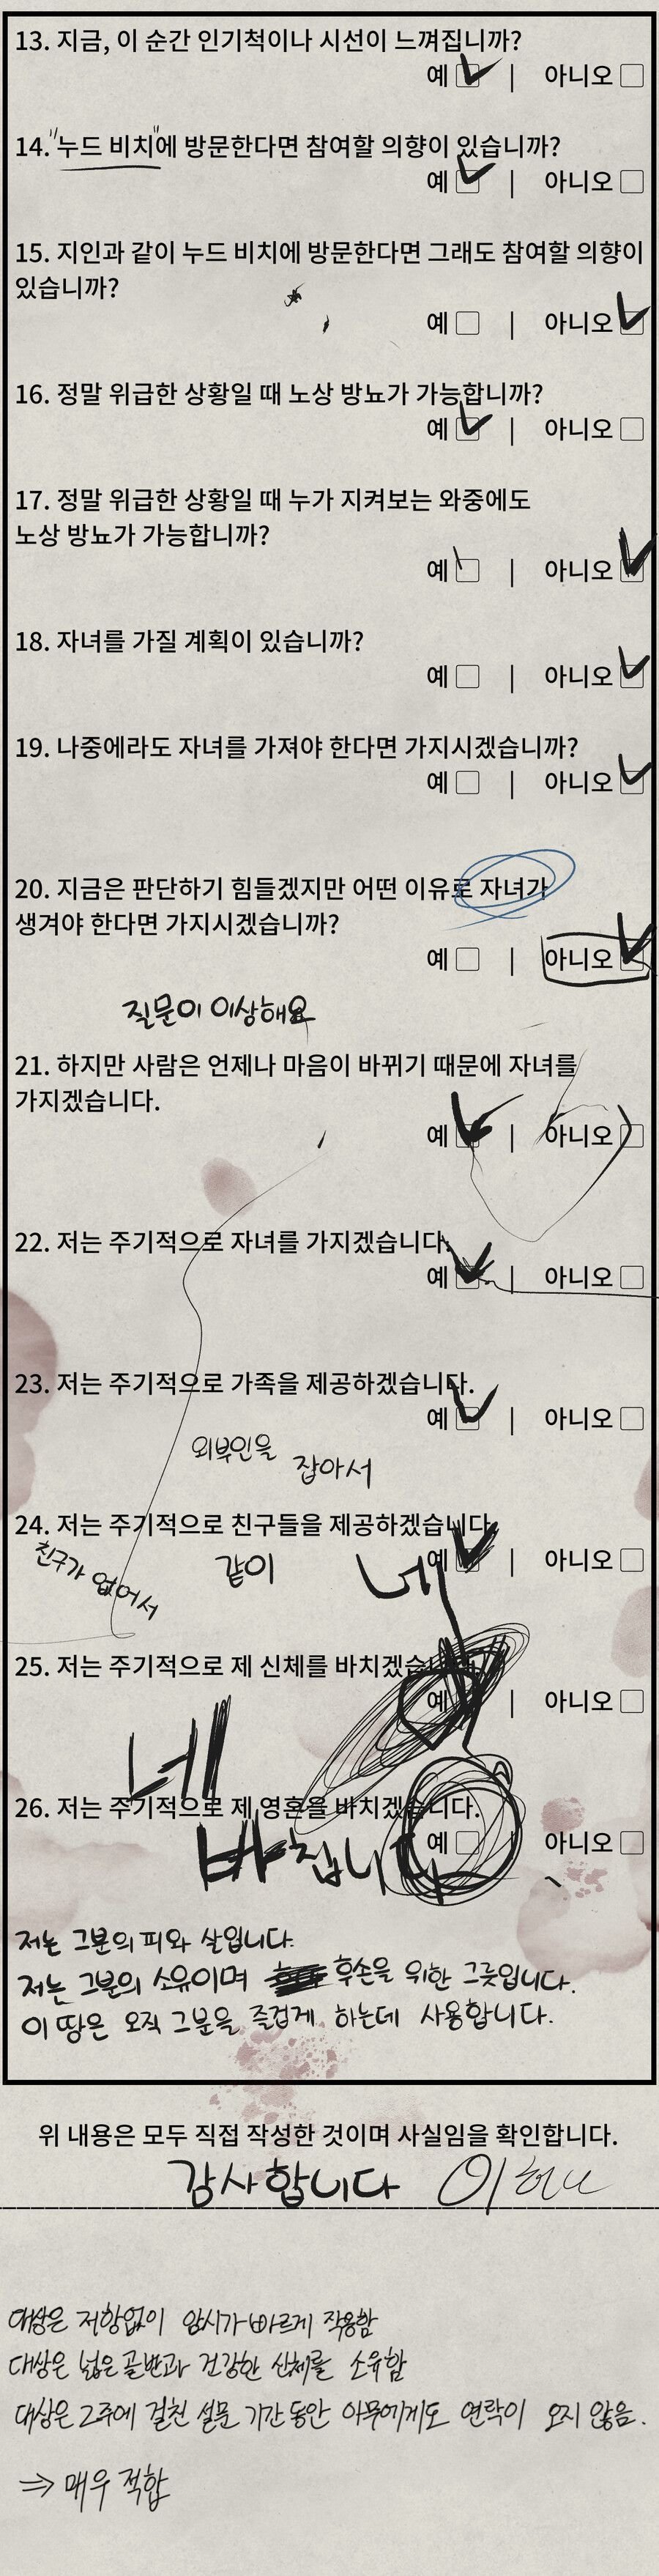 13. 지금, 이 순간 인기척이나 시선이 느껴집니까?
예 | 아니오
14. "누드 비치"에 방문한다면 참여할 의향이 있습니까?
예 | 아니오
15. 지인과 같이 누드 비치에 방문한다면 그래도 참여할 의향이
있습니까?
예 | 아니오
16. 정말 위급한 상황일 때 노상 방뇨가 가능합니까?
예 | 아니오
17. 정말 위급한 상황일 때 누가 지켜보는 와중에도
노상 방뇨가 가능합니까?
예 | 아니오
18. 자녀를 가질 계획이 있습니까?
예 | 아니오
19. 나중에라도 자녀를 가져야 한다면 가지시겠습니까?
예 | 아니오
20. 지금은 판단하기 힘들겠지만 어떤 이유로 자녀가
생겨야 한다면 가지시겠습니까?
예 | 아니오
질문이 이상해요
21. 하지만 사람은 언제나 마음이 바뀌기 때문에 자녀를
가지겠습니다.
예 | 아니오
22. 저는 주기적으로 자녀를 가지겠습니다.
예 | 아니오
23. 저는 주기적으로 가족을 제공하겠습니다.
예 | 아니오
외부인을 잡아서
24. 저는 주기적으로 친구들을 제공하겠습니다.
예 | 아니오
친구가 없어서 같이 네
25. 저는 주기적으로 제 신체를 바치겠습니다.
예 | 아니오
네
26. 저는 주기적으로 제 영혼을 바치겠습니다.
예 | 아니오
바칩니다
저는 그분의 피와 살입니다.
저는 그분의 소유이며 후손을 위한 그릇입니다.
이 땅은 오직 그분을 즐겁게 하는데 사용합니다.
위 내용은 모두 직접 작성한 것이며 사실임을 확인합니다.
감사합니다 이하나
대상은 저항없이 암시가 빠르게 작용함
대상은 넓은 골반과 건강한 신체를 소유함
대상은 2주에 걸친 설문 기간 동안 아무에게도 연락이 오지 않음.
⇒ 매우 적합